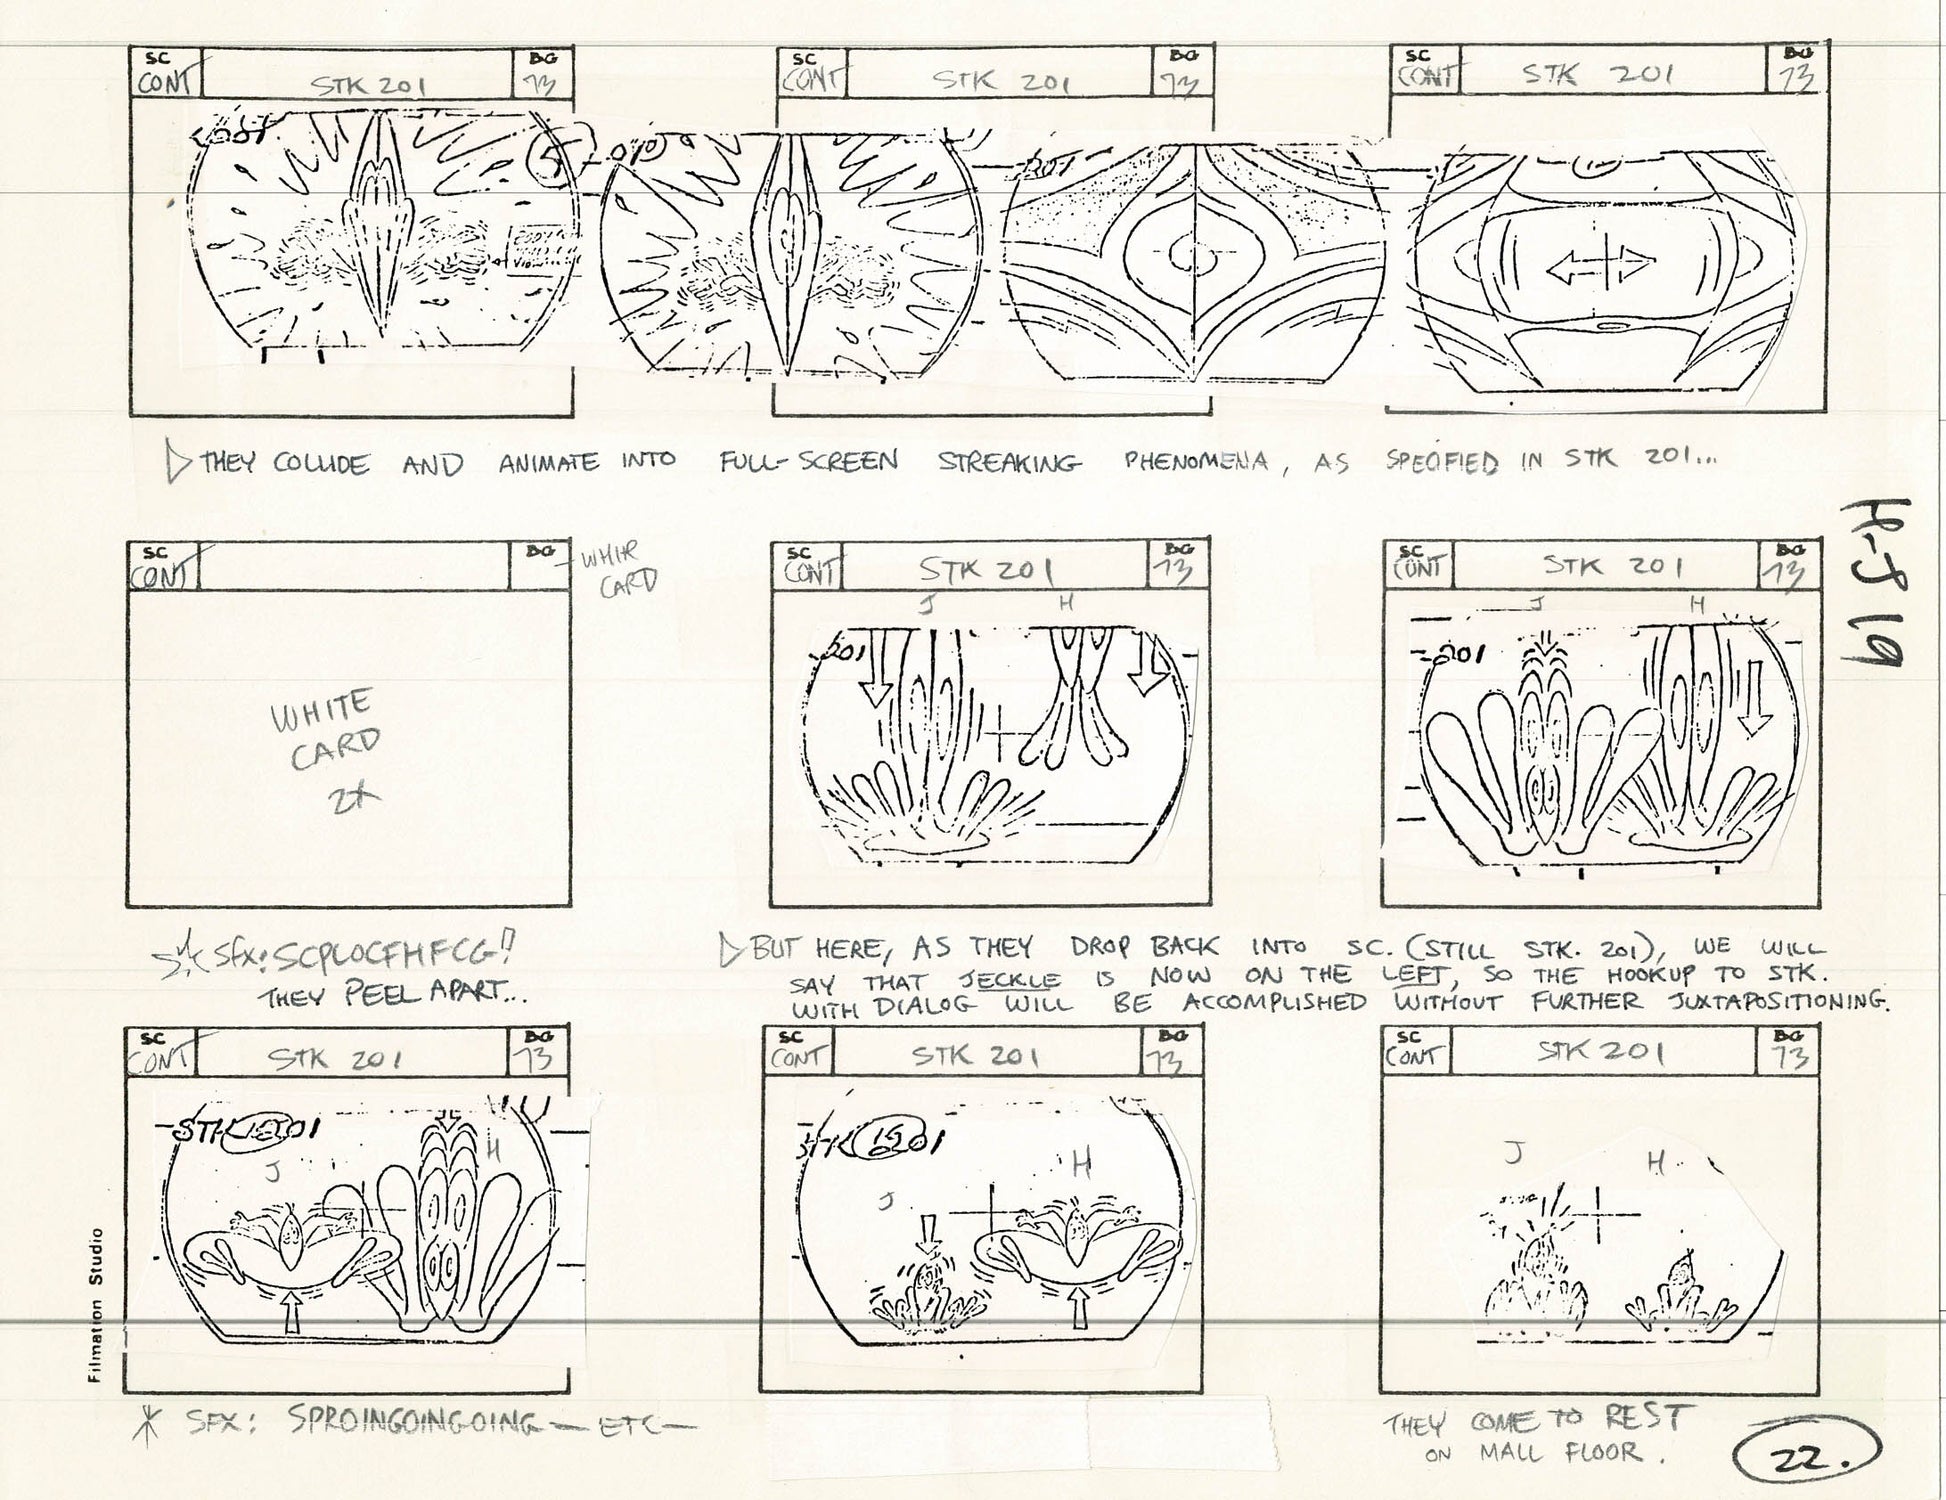 SC
CONT
STK 201
BG
73
SC
CONT
STK 201
BG
73
SC
CONT
STK 201
BG
73
5
201
▷ THEY COLLIDE AND ANIMATE INTO FULL-SCREEN STREAKING PHENOMENA, AS SPECIFIED IN STK 201...
H-J 19
SC
CONT
BG
CARD
WHITE
CARD
2X
SC
CONT
STK 201
BG
73
J H
201
SC
CONT
STK 201
BG
73
J H
201
SFX: SCPLOCFHFCG!!
THEY PEEL APART...
▷ BUT HERE, AS THEY DROP BACK INTO SC. (STILL STK. 201), WE WILL
SAY THAT JECKLE IS NOW ON THE LEFT, SO THE HOOKUP TO STK.
WITH DIALOG WILL BE ACCOMPLISHED WITHOUT FURTHER JUXTAPOSITIONING.
SC
CONT
STK 201
BG
73
J H
SC
CONT
STK 201
BG
73
J H
SC
CONT
STK 201
BG
73
J H
Filmation Studio
SFX: SPROINGOINGOING — ETC —
THEY COME TO REST
ON MALL FLOOR.
22.